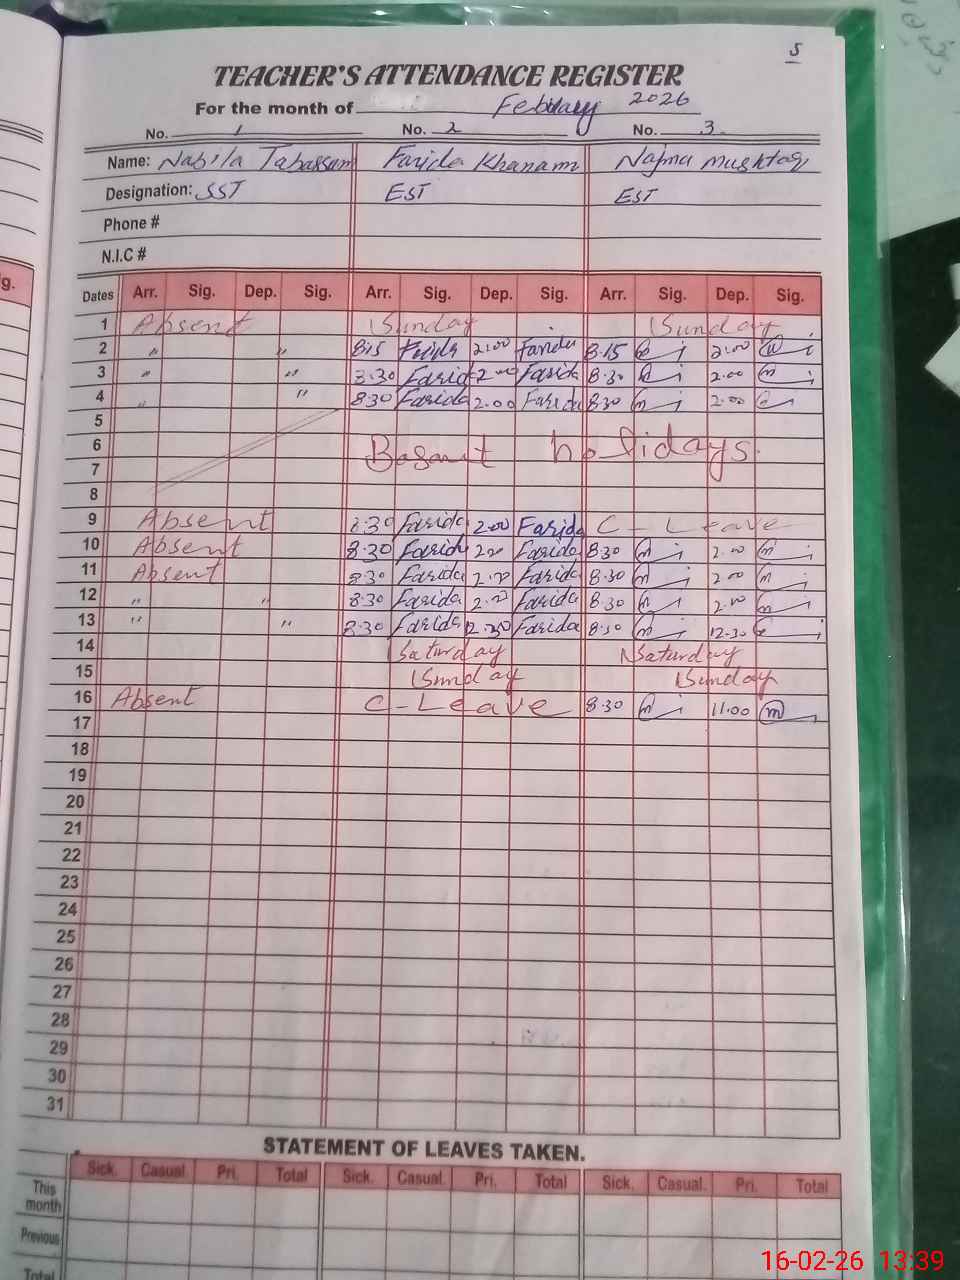 5
TEACHER'S ATTENDANCE REGISTER
For the month of February 2026
No. 1 No. 2 No. 3
Name: Nabila Tabassum Farida Khanam Najma Mushtaq
Designation: SST EST EST
Phone #
N.I.C #
g.
Dates Arr. Sig. Dep. Sig. Arr. Sig. Dep. Sig. Arr. Sig. Dep. Sig.
1 Absent Sunday Sunday
2 " " 8:15 Farida 2:00 Farida 8.15 2:00
3 " " 8.30 Farida 2.00 Farida 8.30 2.00
4 " " 8.30 Farida 2.00 Farida 8.30 2.00
5
6 Basant holidays.
7
8
9 Absent 8.30 Farida 2.00 Farida C - Leave
10 Absent 8.30 Farida 2.00 Farida 8.30 2.00
11 Absent 8.30 Farida 2.00 Farida 8.30 2.00
12 " " 8.30 Farida 2.00 Farida 8.30 2.00
13 " " 8.30 Farida 12.30 Farida 8.30 12.30
14 Saturday Saturday
15 Sunday Sunday
16 Absent C - Leave 8.30 11.00
17
18
19
20
21
22
23
24
25
26
27
28
29
30
31
STATEMENT OF LEAVES TAKEN.
Sick. Casual. Pri. Total Sick. Casual. Pri. Total Sick. Casual. Pri. Total
This month
Previous
Total
16-02-26 13:39